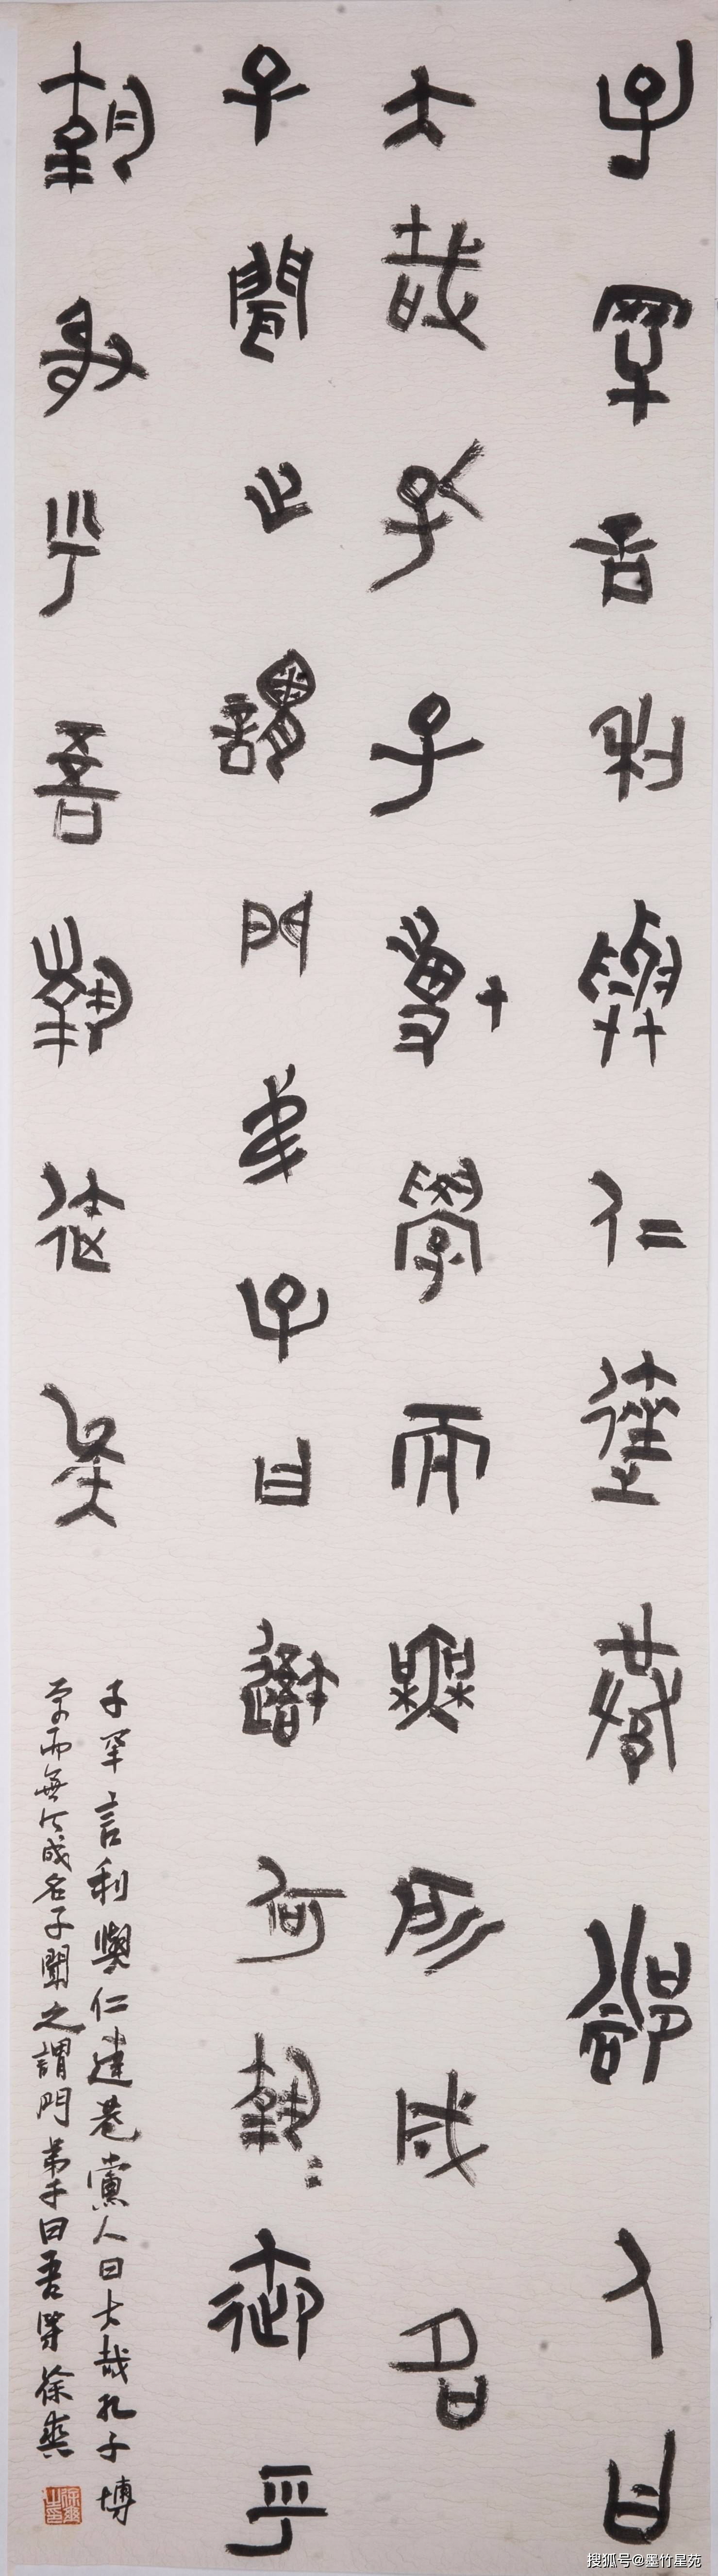 子罕言利與仁達巷黨人曰
大哉孔子博學而無所成名
子聞之謂門弟子曰吾何執〻御乎
執射乎吾執御矣
子罕言利與仁達巷黨人曰大哉孔子博
學而無所成名子聞之謂門弟子曰吾等徐爽
搜狐号@墨竹星苑